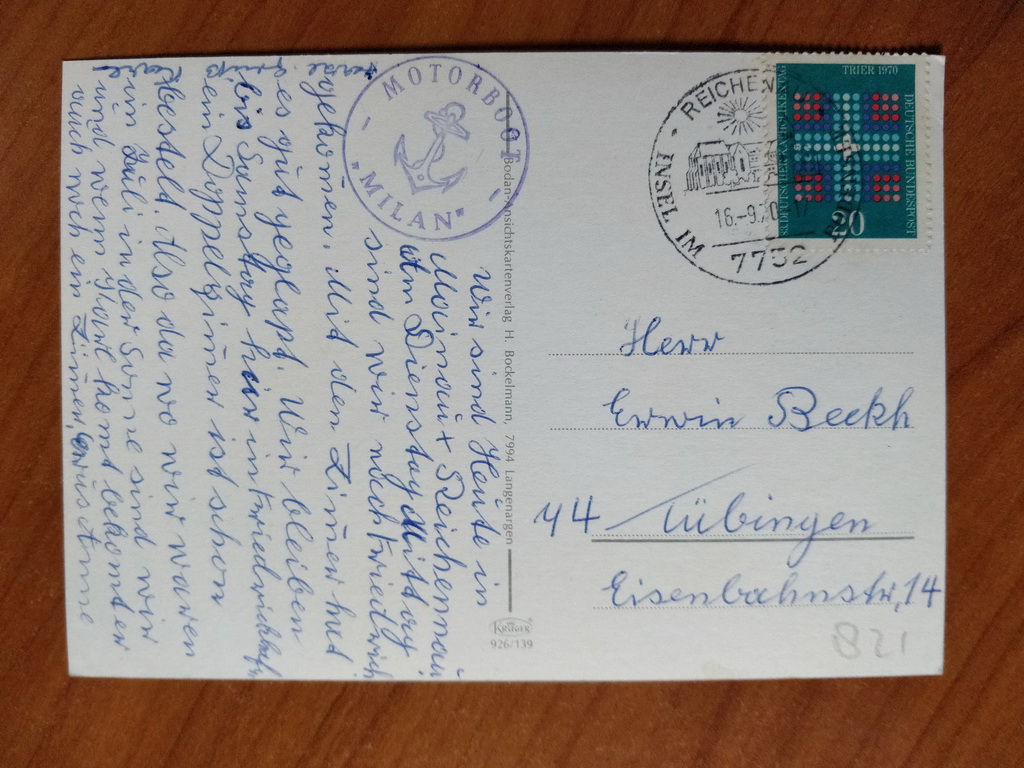 MOTORBOOT
"MILAN"
Wir sind Heute in
Mainau + Reichenau
Am Dienstag Mittag
sind wir nach Friedrich
gekommen. Mit den Zimer had
es gut geglapt. Wir bleiben
bis Samstag hier in Friedrichhafn
ein Doppelzimer ist schon
Besteld. Also da wo wir waren
im Juli in der Sonne sind wir
und wenn komt bekomter
auch noch ein Zimer,
Bodan-Ansichtskartenverlag H. Bockelmann, 7994 Langenargen
KRÜGER
926/139
INSEL IM
REICHEN
16.-9.70
7752
TRIER 1970
DEUTSCHE BUNDESPOST
DEUTSCHER KATHOLIKENTAG
20
Herr
Erwin Beckh
74 Tübingen
Eisenbahnstr, 14
821